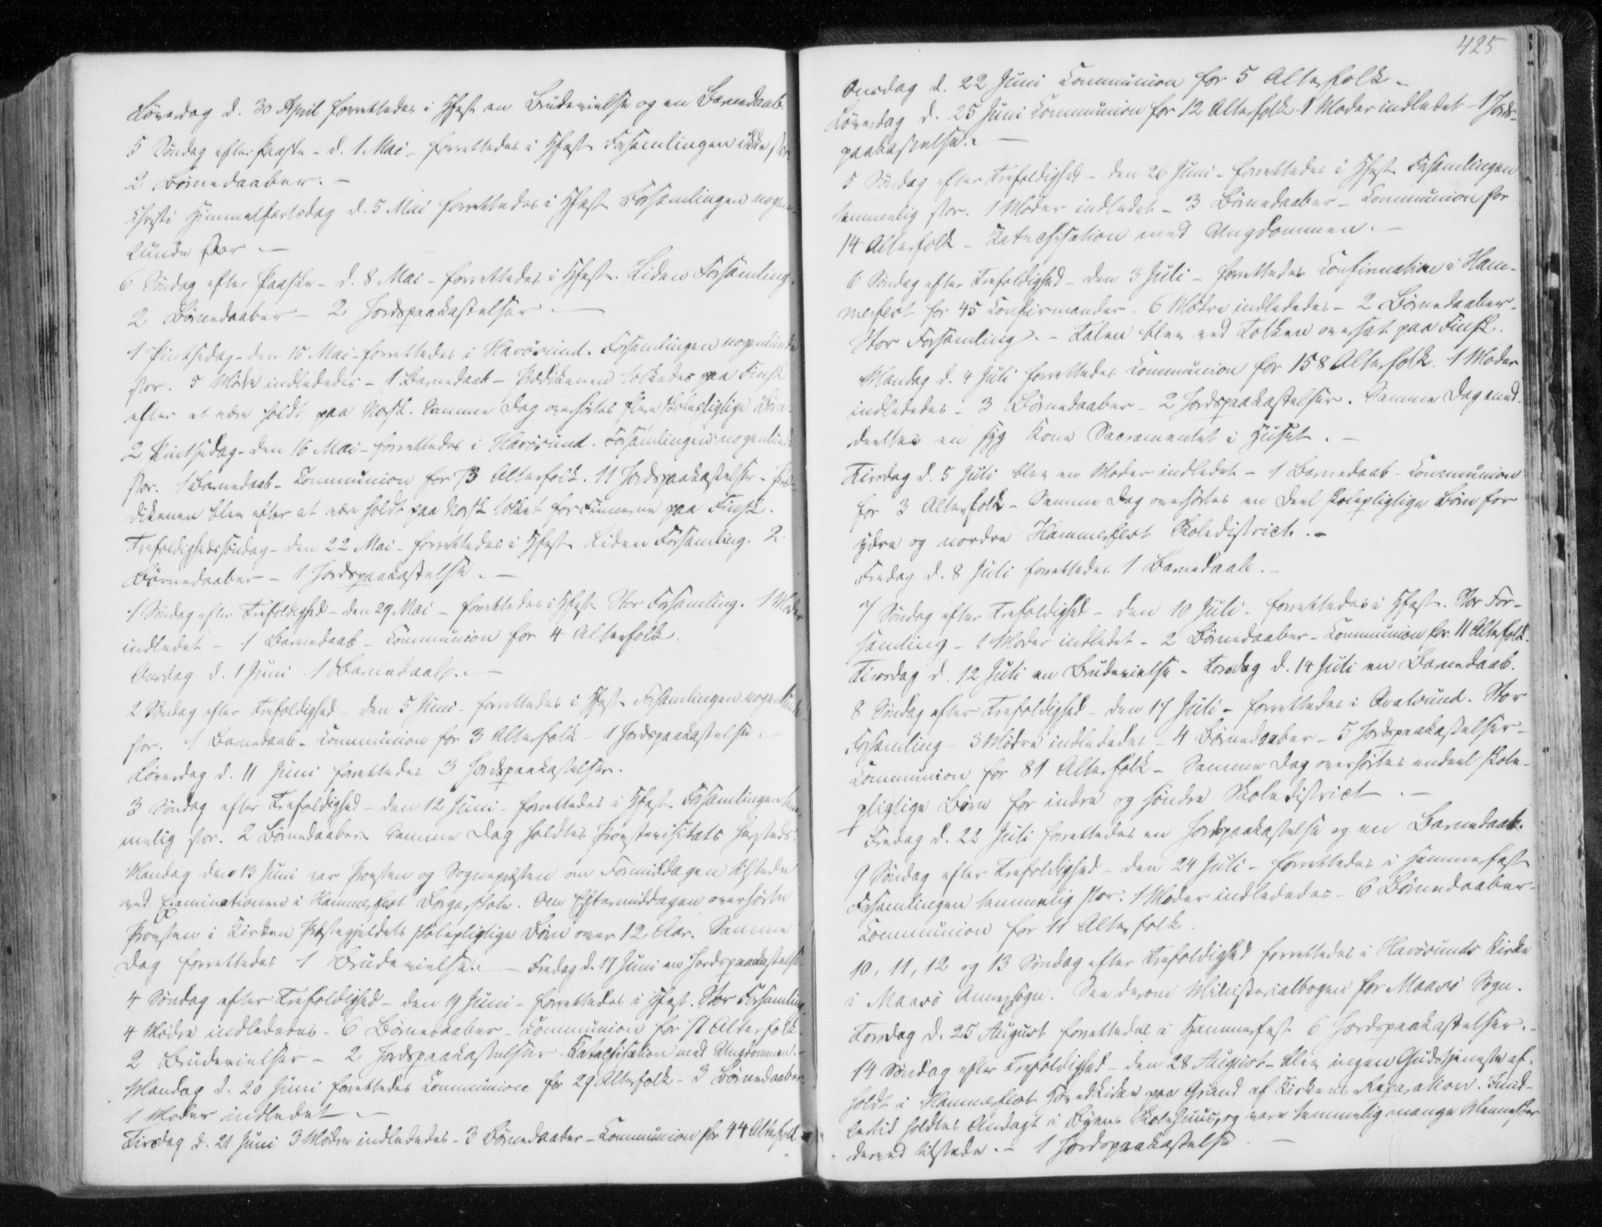 Löverdag d. 30 April forrettedes i Hfest en Brudevielse og en Barnedaab
5 Söndag efter Paaske - d. 1. Mai - forrettedes i Hfest Forsamlingen ikke stor
2 Börnedaaber. -
Christi Himmelfartsdag d. 5 Mai forrettedes i Hfest Forsamlingen nogen-
lunde stor. -
6 Söndag efter Paaske - d. 8 Mai - forrettedes i Hfest. Liden Forsamling.
2 Börnedaaber - 2 Jordspaakastelser. -
1 Pintsedag - den 15. Mai - forrettedes i Havösund. Forsamlingen nogenlunde
stor. 5 Mödre indlededes - 1 Barnedaab - Prædikenen tolkedes paa Finsk
efter at være holdt paa Norsk. Samme Dag overhörtes flere skolepligtige Börn.
2 Pintsedag - den 16 Mai - forrettedes i Havösund. Forsamlingen nogenlunde
stor. 1 Barnedaab - Communion for 73 Alterfolk. 11 Jordspaakastelser - Præ-
dikenen blev efter at være holdt paa Norsk tolket for Finnerne paa Finsk.
Trefoldighedssöndag - den 22 Mai - forrettedes i Hfest Liden Forsamling. 2
Börnedaaber - 1 Jordspaakastelse. -
1 Söndag efter Trefoldighed - den 29 Mai - forrettedes i Hfest Stor Forsamling. 1 Moder
indledet - 1 Barnedaab - Communion for 4 Alterfolk.
Onsdag d. 1 Juni 1 Barnedaab. -
2 Söndag efter Trefoldighed - den 5 Juni - forrettedes i Hfest Forsamlingen nogenlunde
stor. 1 Barnedaab - Communion for 3 Alterfolk - 1 Jordspaakastelse. -
Löverdag d. 11 Juni forrettedes 3 Jordspaakastelser.
3 Söndag efter Trefoldighed - den 12 Juni - forrettedes i Hfest Forsamlingen tem-
melig stor. 2 Börnedaaber Samme Dag holdtes Provstevisitats
Mandag den 13 Juni var Provsten og Sognepræsten om Formiddagen tilstede
ved Examinationen i Hammerfest Borgerskole. Om Eftermiddagen overhörte
Provsten i Kirken Præstegjeldets skolepligtige Börn over 12 Aar. Samme
Dag forrettedes 1 Brudevielse. - Fredag d. 17 Juni en Jordspaakastelse.
4 Söndag efter Trefoldighed - den 19 Juni - forrettedes i Hfest. Stor Forsamling
4 Mödre indlededes - 6 Börnedaaber - Communion for 51 Alterfolk
2 Brudevielser - 2 Jordspaakastelser. Katachisation med Ungdommen. -
Mandag d. 20 Juni forrettedes Communion for 29 Alterfolk - 3 Börnedaaber
1 Moder indledet. -
Tirsdag d. 21 Juni 3 Mödre indlededes - 3 Börnedaaber - Communion for 44 Alterfolk.
425
Onsdag d. 22 Juni Communion for 5 Alterfolk -
Löverdag d. 25 Juni Communion for 12 Alterfolk 1 Moder indledet - 1 Jords-
paakastelse. -
5 Söndag efter Trefoldighed - den 26 Juni - forrettedes i Hfest Forsamlingen
temmelig stor. 1 Moder indledet - 3 Börnedaaber - Communion for
14 Alterfolk - Katechisation med Ungdommen. -
6 Söndag efter Trefoldighed - den 3 Juli - forrettedes Confirmation i Ham-
merfest for 45 Confirmander. 6 Mödre indlededes - 2 Börnedaaber.
Stor Forsamling. - Talen blev ved Tolken oversat paa Finsk.
Mandag d. 4 Juli forrettedes Communion for 158 Alterfolk. 1 Moder
indlededes - 3 Börnedaaber - 2 Jordspaakastelser. Samme Dag med-
deeltes en syg Kone Sacramentet i Huset. -
Tirsdag d. 5 Juli blev en Moder indledet - 1 Barnedaab - Communion
for 3 Alterfolk - Samme Dag overhörtes en Deel skolepligtige Börn for
ydre og nordre Hammerfest Skoledistrict. -
Fredag d. 8 Juli forrettedes 1 Barnedaab. -
7 Söndag efter Trefoldighed - den 10 Juli - forrettedes i Hfest. Stor For-
samling - 1 Moder indledet - 2 Börnedaaber - Communion for 11 Alterfolk.
Tirsdag d. 12 Juli en Brudevielse - Torsdag d. 14 Juli en Barnedaab.
8 Söndag efter Trefoldighed - den 17 Juli - forrettedes i Qvalsund. Stor
Forsamling - 3 Mödre indlededes - 4 Börnedaaber - 5 Jordspaakastelser -
Communion for 81 Alterfolk - Samme Dag overhörtes endeel skole-
pligtige Börn for indre og söndre Skoledistrict. -
Fredag d. 22 Juli forrettedes en Jordspaakastelse og en Barnedaab.
9 Söndag efter Trefoldighed - den 24 Juli - forrettedes i Hammerfest
Forsamlingen temmelig stor. 1 Moder indlededes - 6 Börnedaaber -
Communion for 11 Alterfolk.
10, 11, 12 og 13 Söndag efter Trefoldighed forrettedes i Havösunds Kirke
i Maasö Annexsogn. See derom Ministerialbogen for Maasö Sogn.
Torsdag d. 25 August forrettedes i Hammerfest 6 Jordspaakastelser. -
14 Söndag efter Trefoldighed - den 28 August - blev ingen Gudstjeneste af-
holdt i Hammerfest Hovedkirke paa Grund af Kirkens Reparation. Imid-
lertid holdtes Andagt i Byens Skolehuus, og vare temmelig mange Mennesker
derved tilstede. - 1 Jordspaakastelse -